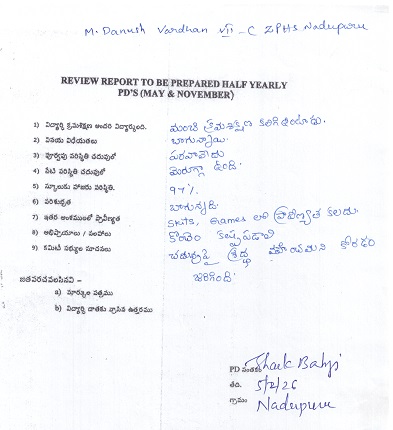 M. Danush Vardhan VII - C ZPHS Nadupuru
REVIEW REPORT TO BE PREPARED HALF YEARLY
PD'S (MAY & NOVEMBER)
1) విద్యార్థి క్రమశిక్షణ అందరి విద్యార్థులంది. మంచి క్రమశిక్షణ కలిగి ఉంటాడు.
2) వినయ విధేయతలు బాగున్నాయి.
3) పూర్వపు పరిస్థితి చదువులో పరవాలేదు
4) నేటి పరిస్థితి చదువులో మెరుగ్గా ఉంది.
5) స్కూలుకు హాజరు పరిస్థితి. 97%
6) పరిశుభ్రత బాగున్నది.
7) ఇతర అంశములలో ప్రావీణ్యత Skits, Games లో ప్రావీణ్యత కలదు.
8) అభిప్రాయాలు / సలహాలు కొంచెం కష్టపడాలి
9) కమిటీ సభ్యుల సూచనలు చదువుపై శ్రద్ధ వహించమని కోరడం
జరిగింది.
జతపరచవలసినవి –
a) మార్కుల పత్రము
b) విద్యార్థి దాతకు వ్రాసిన ఉత్తరము
PD సంతకం Shaik Babji
తేది. 5/2/26
గ్రామం Nadupuru